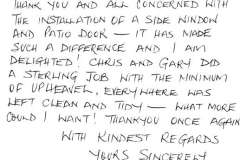 THANK YOU AND ALL CONCERNED WITH
THE INSTALLATION OF A SIDE WINDOW
AND PATIO DOOR — IT HAS MADE
SUCH A DIFFERENCE AND I AM
DELIGHTED! CHRIS AND GARY DID
A STERLING JOB WITH THE MININIUM
OF UPHEAVEL. EVERYWHERE WAS
LEFT CLEAN AND TIDY — WHAT MORE
COULD I WANT! THANKYOU ONCE AGAIN
WITH KINDEST REGARDS
YOURS SINCERELY